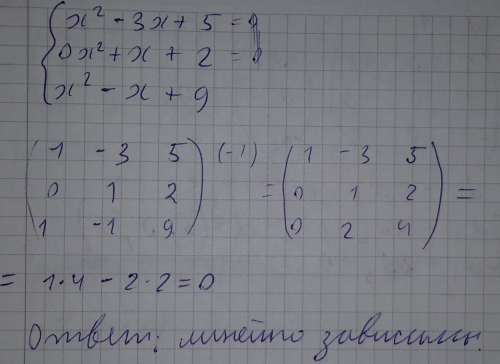 x² - 3x + 5 = 0
0x² + x + 2 = 0
x² - x + 9
( 1 -3 5 ) (-1) = ( 1 -3 5 ) =
0 1 2 0 1 2
1 -1 9 0 2 4
= 1·4 - 2·2 = 0
Ответ: линейно зависимы.